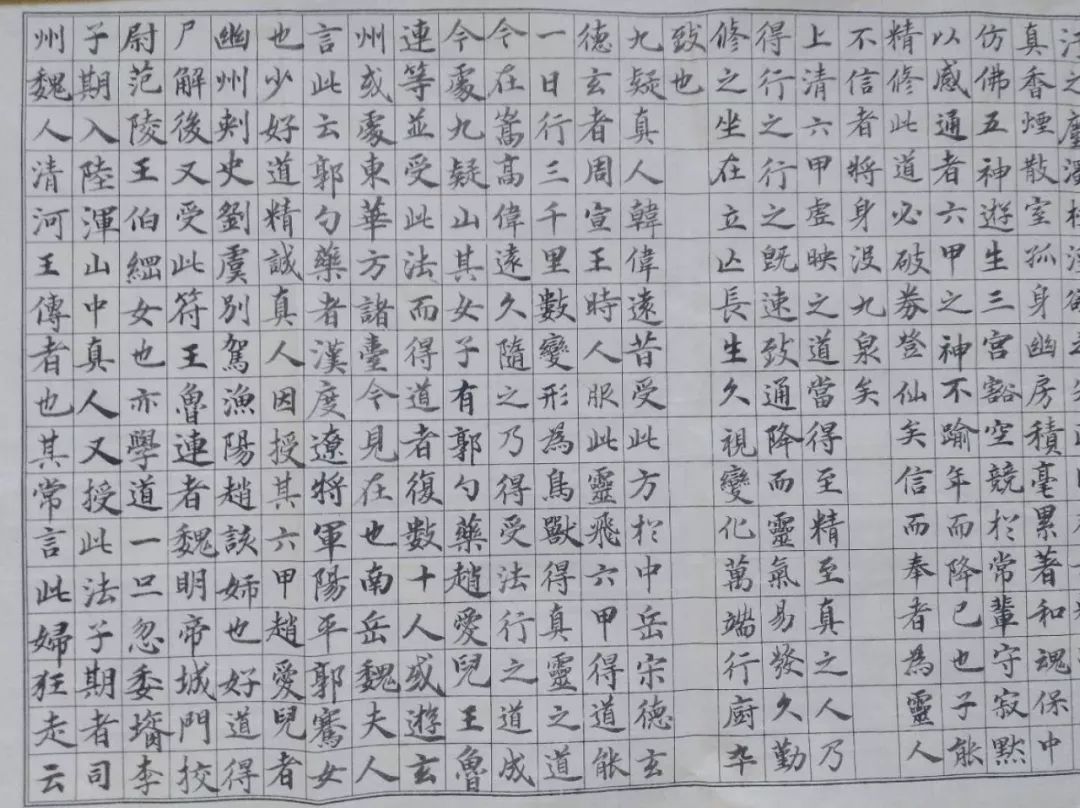 真香煙散室孤身幽房積毫累著和魂保中
仿佛五神遊生三宮豁空競於常輩守寂默
以感通者六甲之神不踰年而降已也子能
精修此道必破券登仙矣信而奉者為靈人
不信者將身沒九泉矣
上清六甲虛映之道當得至精至真之人乃
得行之行之既速致通降而靈氣易發久勤
修之坐在立亡長生久視變化萬端行廚卒
致也
九疑真人韓偉遠昔受此方於中岳宋德玄
德玄者周宣王時人服此靈飛六甲得道能
一日行三千里數變形為鳥獸得真靈之道
今在嵩高偉遠久隨之乃得受法行之道成
今處九疑山其女子有郭勺藥趙愛兒王魯
連等並受此法而得道者復數十人或遊玄
州或處東華方諸臺今見在也南岳魏夫人
言此云郭勺藥者漢度遼將軍陽平郭騫女
也少好道精誠真人因授其六甲趙愛兒者
幽州刾史劉虞別駕漁陽趙該姊也好道得
尸解後又受此符王魯連者魏明帝城門挍
尉范陵王伯綱女也亦學道一旦忽委壻李
子期入陸渾山中真人又授此法子期者司
州魏人清河王傳者也其常言此婦狂走云